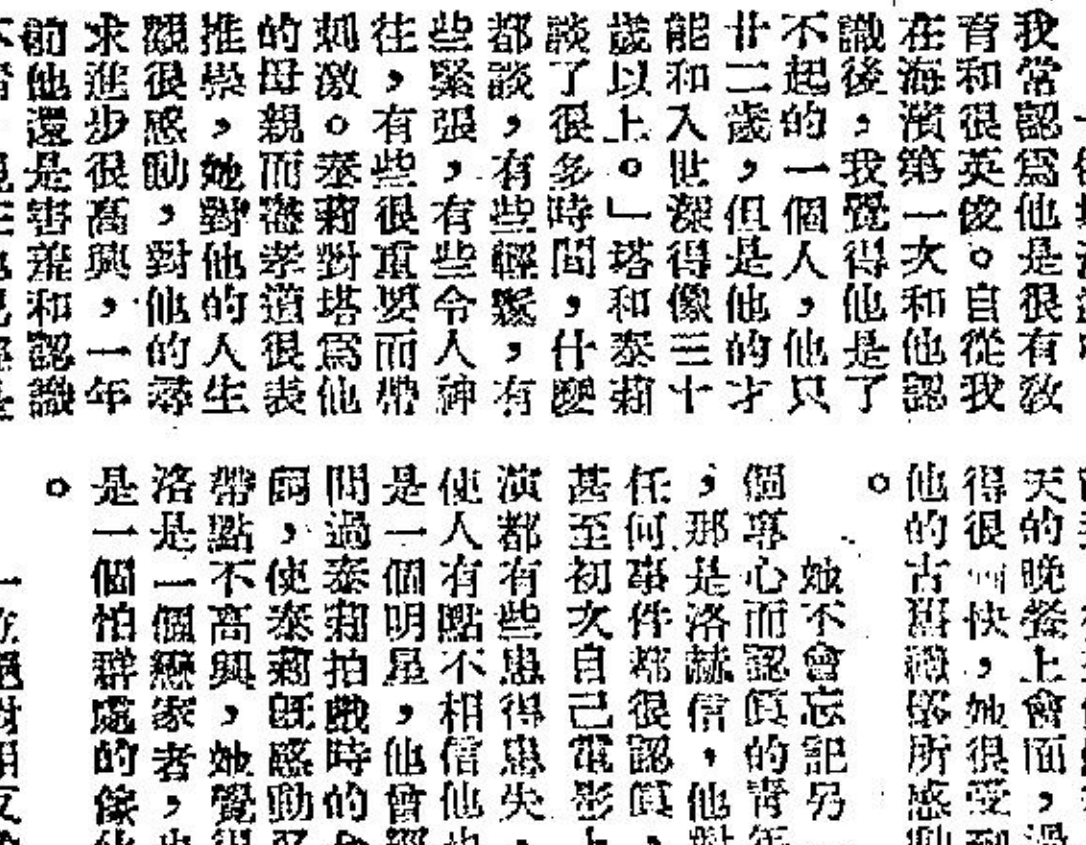 我常認爲他是很有敎
育和很英俊。自從我
在海濱第一次和他認
識後,我覺得他是了
不起的一個人,他只
廿二歲,但是他的才
能和入世深得像三十
歲以上。」塔和泰莉
談了很多時間,什麼
都談,有些輕鬆,有
些緊張,有些令人神
往,有些很重要而帶
刺激。泰莉對塔爲他
的母親而盡孝道很表
推崇,她對他的人生
觀很感動,對他的尋
求進步很高興,一年
前他還是害羞和認識
天的晚餐上會面,過
得很愉快,她很受到
他的古所感動
。
她不會忘記另
個專心而認眞的靑年
,那是洛赫信,他對
任何事件都很認眞,
甚至初次自己電影上
演都有些患得患失,
使人有點不相信他也
是一個明星,他曾經
問過泰莉拍戲時的
,使泰莉既感動又
帶點不高興,她覺得
洛是一個戀家者,也
是一個怕群處的像他
。